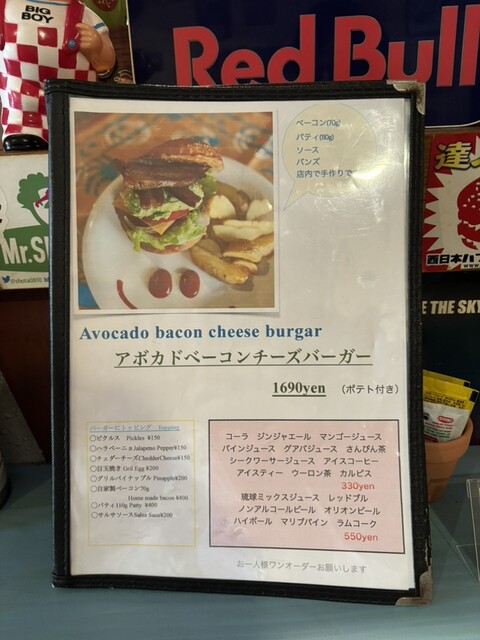 BIG
BOY
Red Bull
ベーコン(70g)
パティ(110g)
ソース
バンズ
店内で手作りで
達
Mr.S
西日本ハ
E THE SKY
Avocado bacon cheese burgar
アボカドベーコンチーズバーガー
1690yen （ポテト付き）
バーガーにトッピング... Topping
〇ピクルス Pickles ¥150
〇ハラペーニョ Jalapeno Pepper¥150
〇チェダーチーズChedderCheese¥150
〇目玉焼き Gril Egg ¥200
〇グリルパイナップル Pineapple¥200
〇自家製ベーコン70g
Home made bacon ¥400
〇パティ110g Patty ¥400
〇サルサソースSalsa Sauce¥200
コーラ ジンジャエール マンゴージュース
パインジュース グアバジュース さんぴん茶
シークワーサージュース アイスコーヒー
アイスティー ウーロン茶 カルピス
330yen
琉球ミックスジュース レッドブル
ノンアルコールビール オリオンビール
ハイボール マリブパイン ラムコーク
550yen
お一人様ワンオーダーお願いします